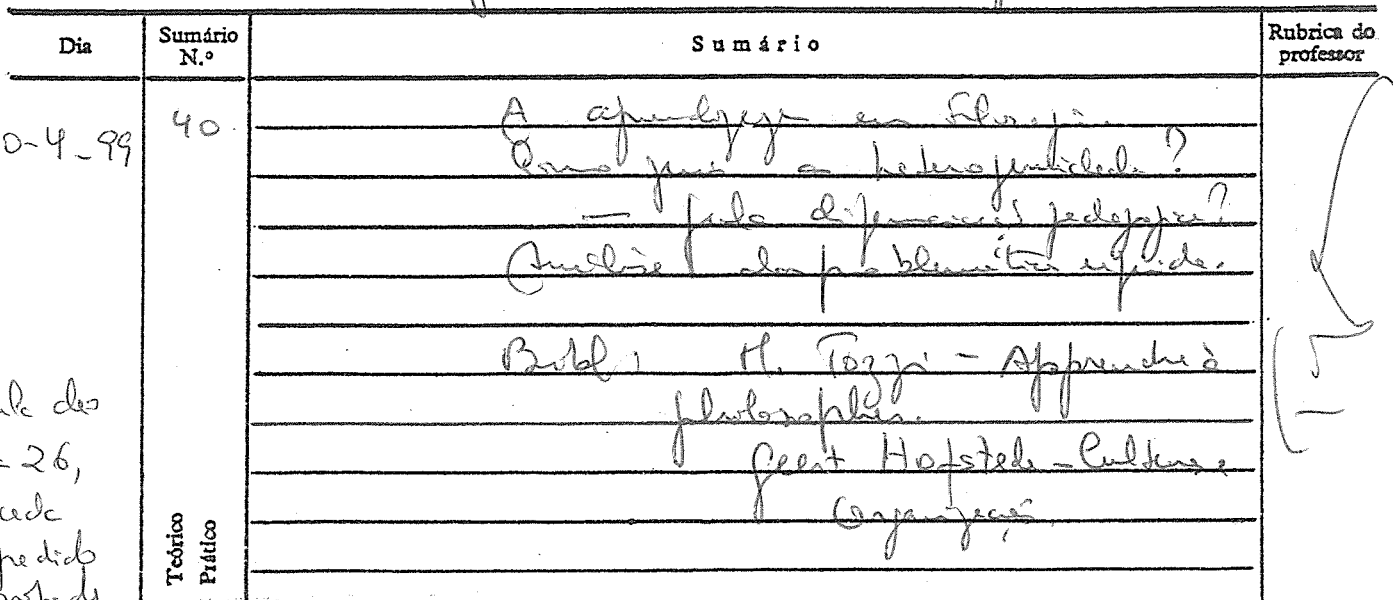 Dia
Sumário N.º
Sumário
Rubrica do professor
0-4-99
40
A aprendizagem em Filosofia.
Como gerir a heterogeneidade?
— pela diferenciação pedagógica?
Análise da problemática
Bibl: M. Tozzi - Apprendre à
philosopher.
Geert Hofstede - Culturas e
Organizações.
des
- 26,
pedido
Teórico
Prático